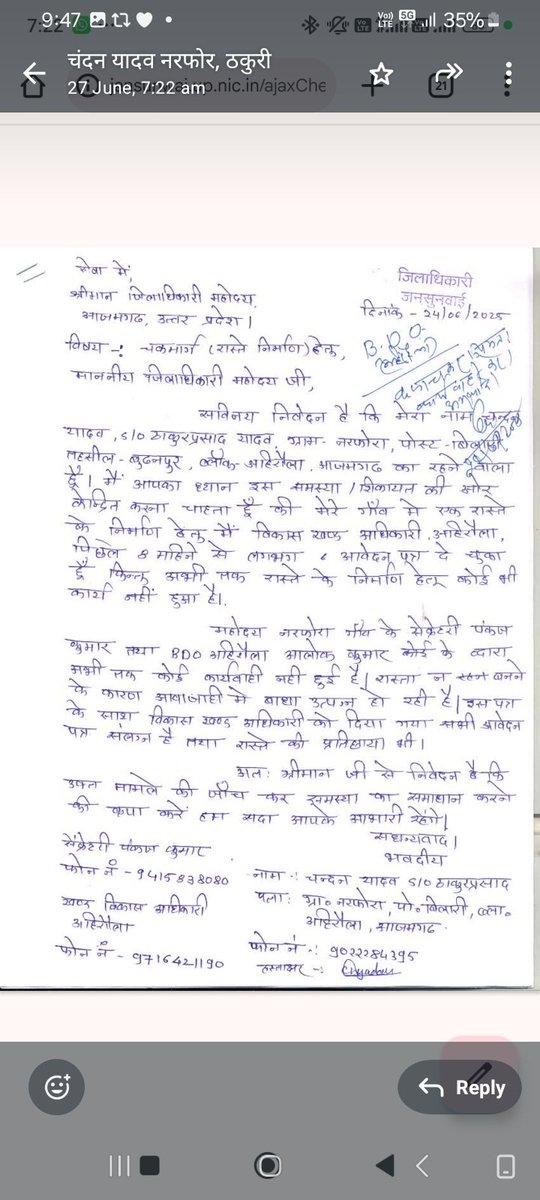 9:47
5G
35%
7:22
चंदन यादव नरफोर, ठकुरी
27 June, 7:22 am
.nic.in/ajaxChe
21
सेवा में,
श्रीमान जिलाधिकारी महोदय
आजमगढ़, उत्तर प्रदेश।
जिलाधिकारी
जनसुनवाई
दिनांक - 24/06/2025
विषय -: चकमार्ग (रास्ते निर्माण) हेतु,
माननीय जिलाधिकारी महोदय जी,
B.D.O.
सविनय निवेदन है कि मेरा नाम चन्दन
यादव, s/o ठाकुरप्रसाद यादव, ग्राम- नरफोरा, पोस्ट-
तहसील - बुढनपुर, ब्लॉक अहिरौला, आजमगढ का रहने वाला
हूँ। मैं आपका ध्यान इस समस्या/शिकायत की ओर
केन्द्रित करना चाहता हूँ की मेरे गाँव मे एक रास्ते
के निर्माण हेतु मैं विकास खण्ड अधिकारी, अहिरौला,
पिछले 8 महिने से लगभग 6 आवेदन पत्र दे चूका
हूँ किन्तु अभी तक रास्ते के निर्माण हेतू कोई भी
कार्य नहीं हुआ है।
महोदय नरफोरा गाँव के सेक्रेटरी पंकज
कुमार तथा BDO अहिरौला आलोक कुमार के द्वारा
अभी तक कोई कार्यवाही नही हुई है। रास्ता न बनने
के कारण आवाजाही मे बाधा उत्पन्न हो रही है। इस पत्र
के साथ विकास खण्ड अधिकारी को दिया गया सभी आवेदन
पत्र संलग्न है तथा रास्ते की प्रतिछाया भी।
अतः श्रीमान जी से निवेदन है कि
उक्त मामले की जाँच कर समस्या का समाधान करने
की कृपा करें हम सदा आपके आभारी रहेंगे।
सधन्यवाद।
भवदीय
सेक्रेटरी पंकज कुमार
फोन नं - 9415838080
नाम -: चन्दन यादव s/o ठाकुरप्रसाद
पता: ग्रा० नरफोरा, पो० बिलारी, ब्ला०
अहिरौला, आजमगढ.
खण्ड विकास अधिकारी
अहिरौला
फोन नं - 9716421190
फोन नं -: 9022284395
हस्ताक्षर -: CYadav
Reply